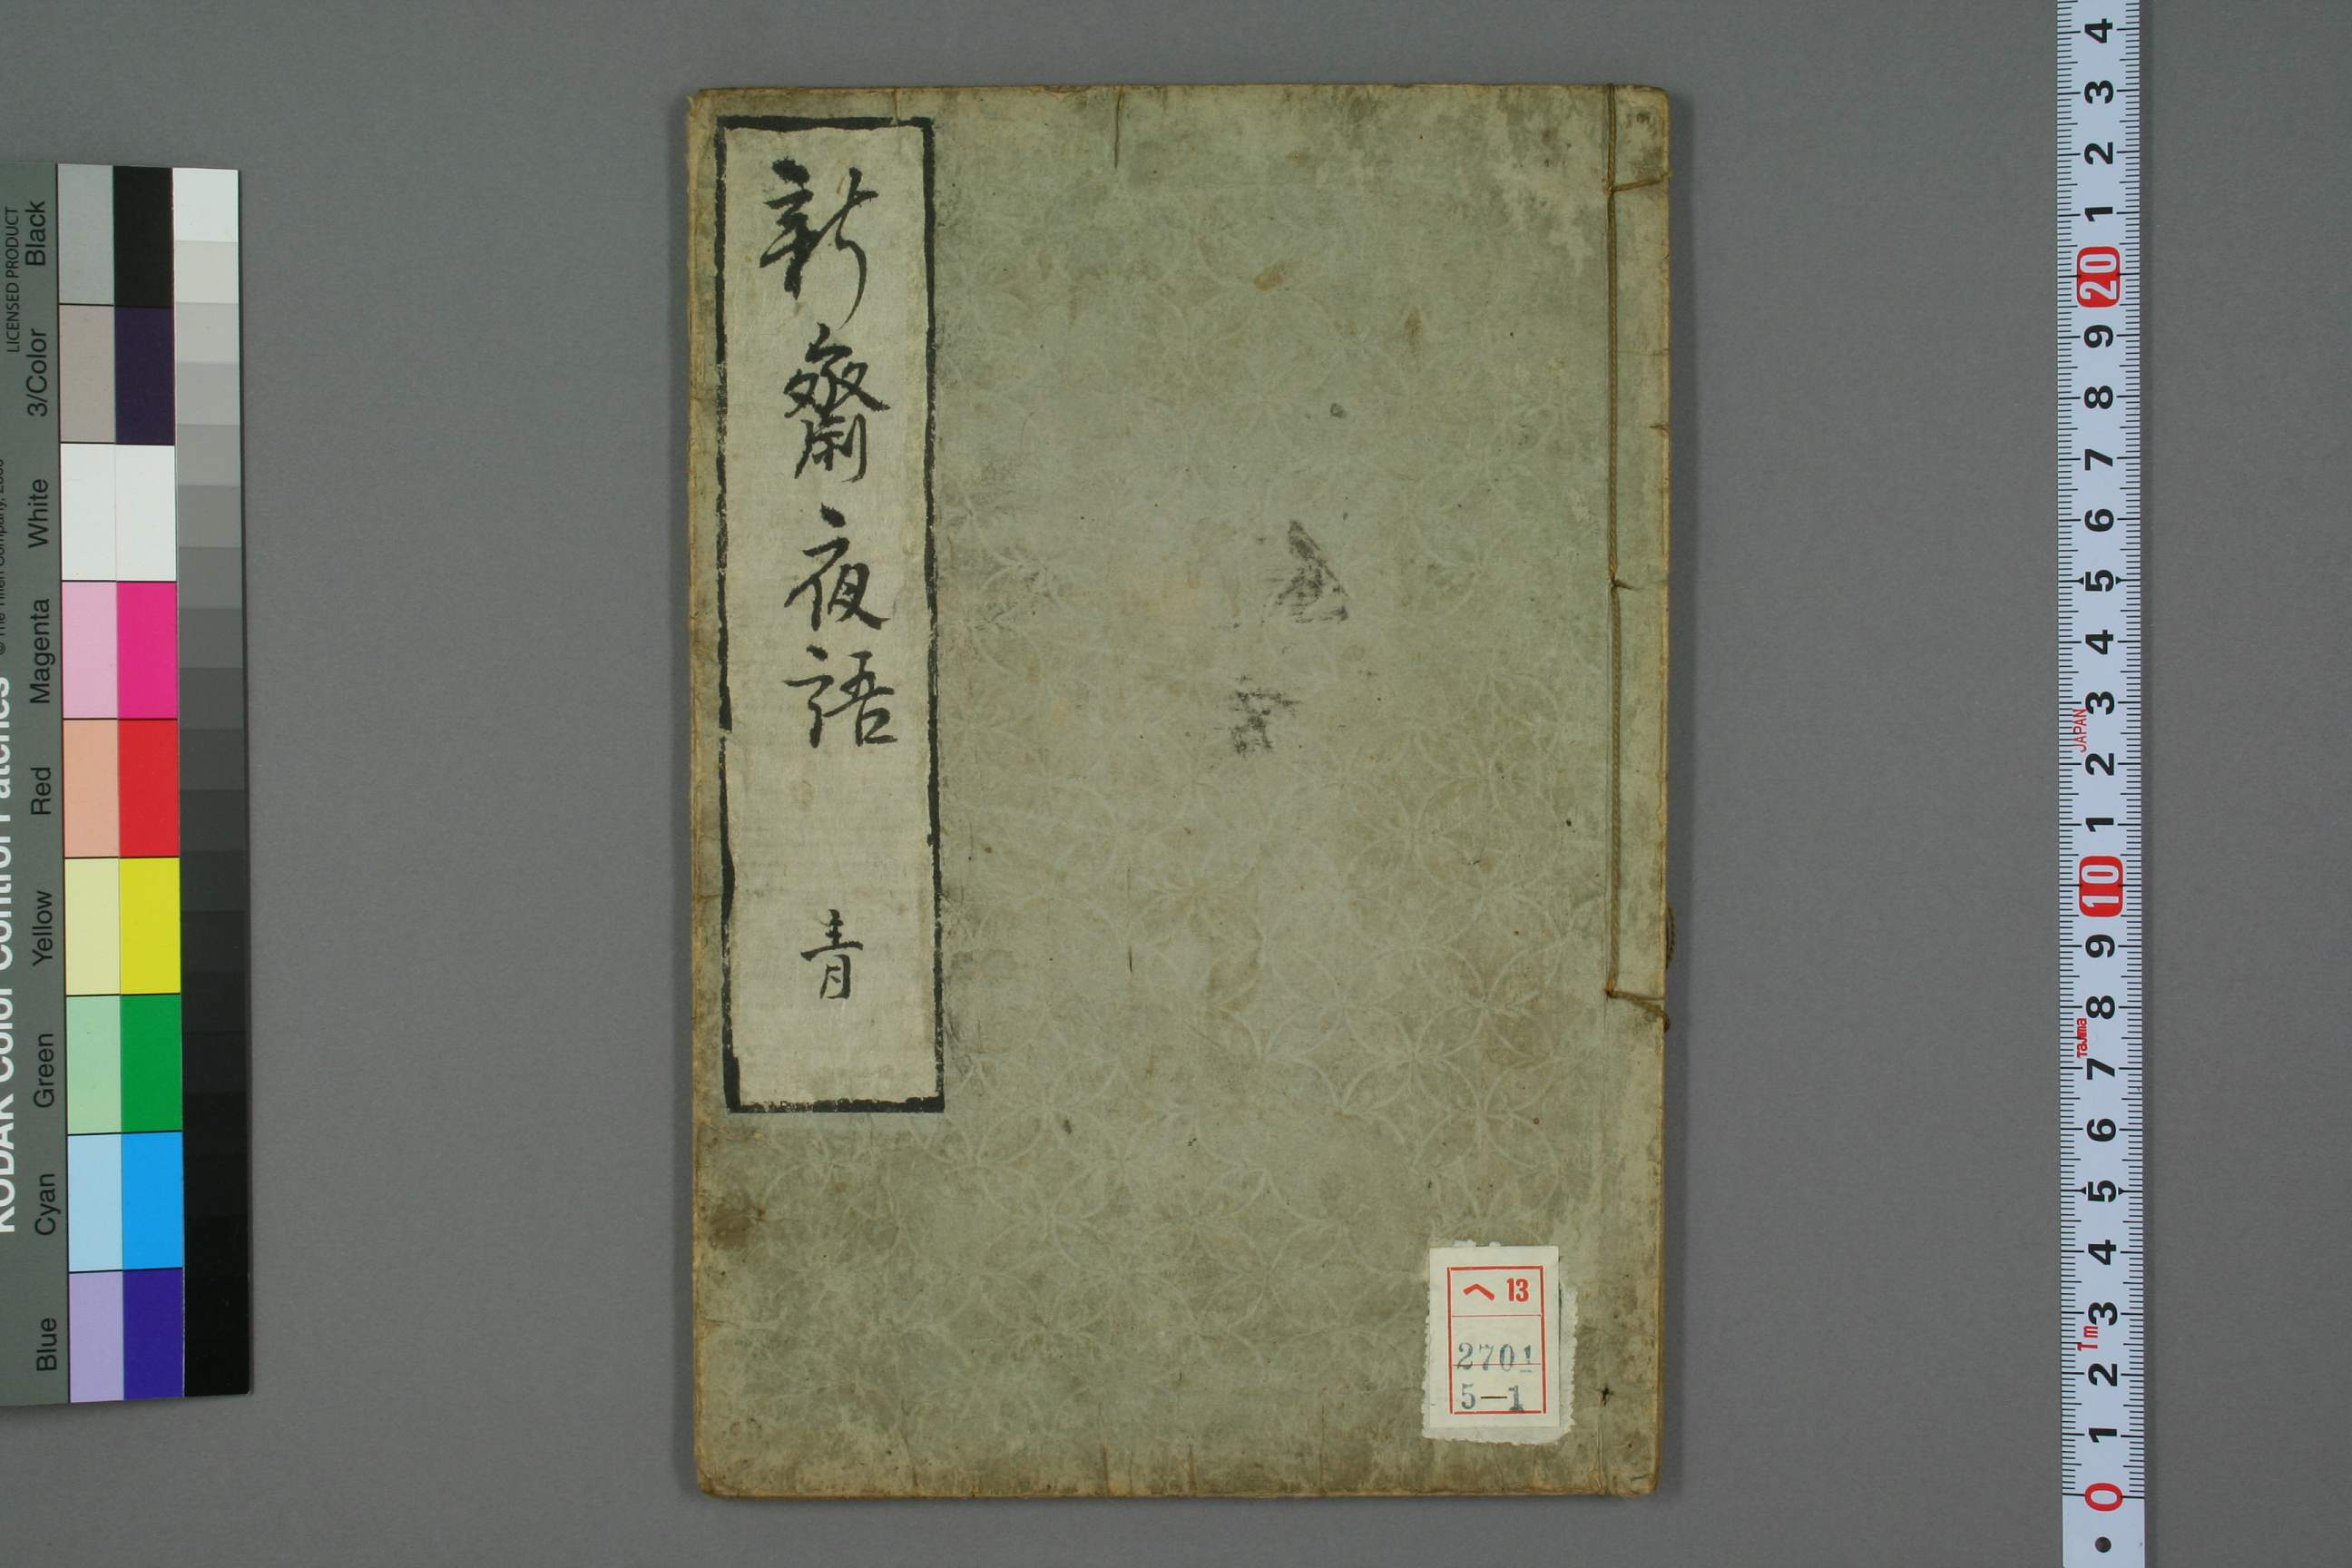 新齋夜語 青
へ 13
2701
5-1
LICENSED PRODUCT
Black
3/Color
White
Magenta
Red
Yellow
Green
Cyan
Blue
KODAK Color Control Patches
4
3
2
1
20
9
8
7
6
5
4
3
JAPAN
2
1
10
9
8
Tajima
7
6
5
4
3
Tm
2
1
0